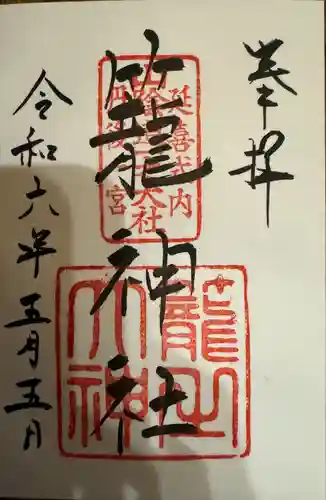 奉拝
延喜式内
山陰道一大社
丹後一宮
籠神社
籠之大神
令和六年五月五日